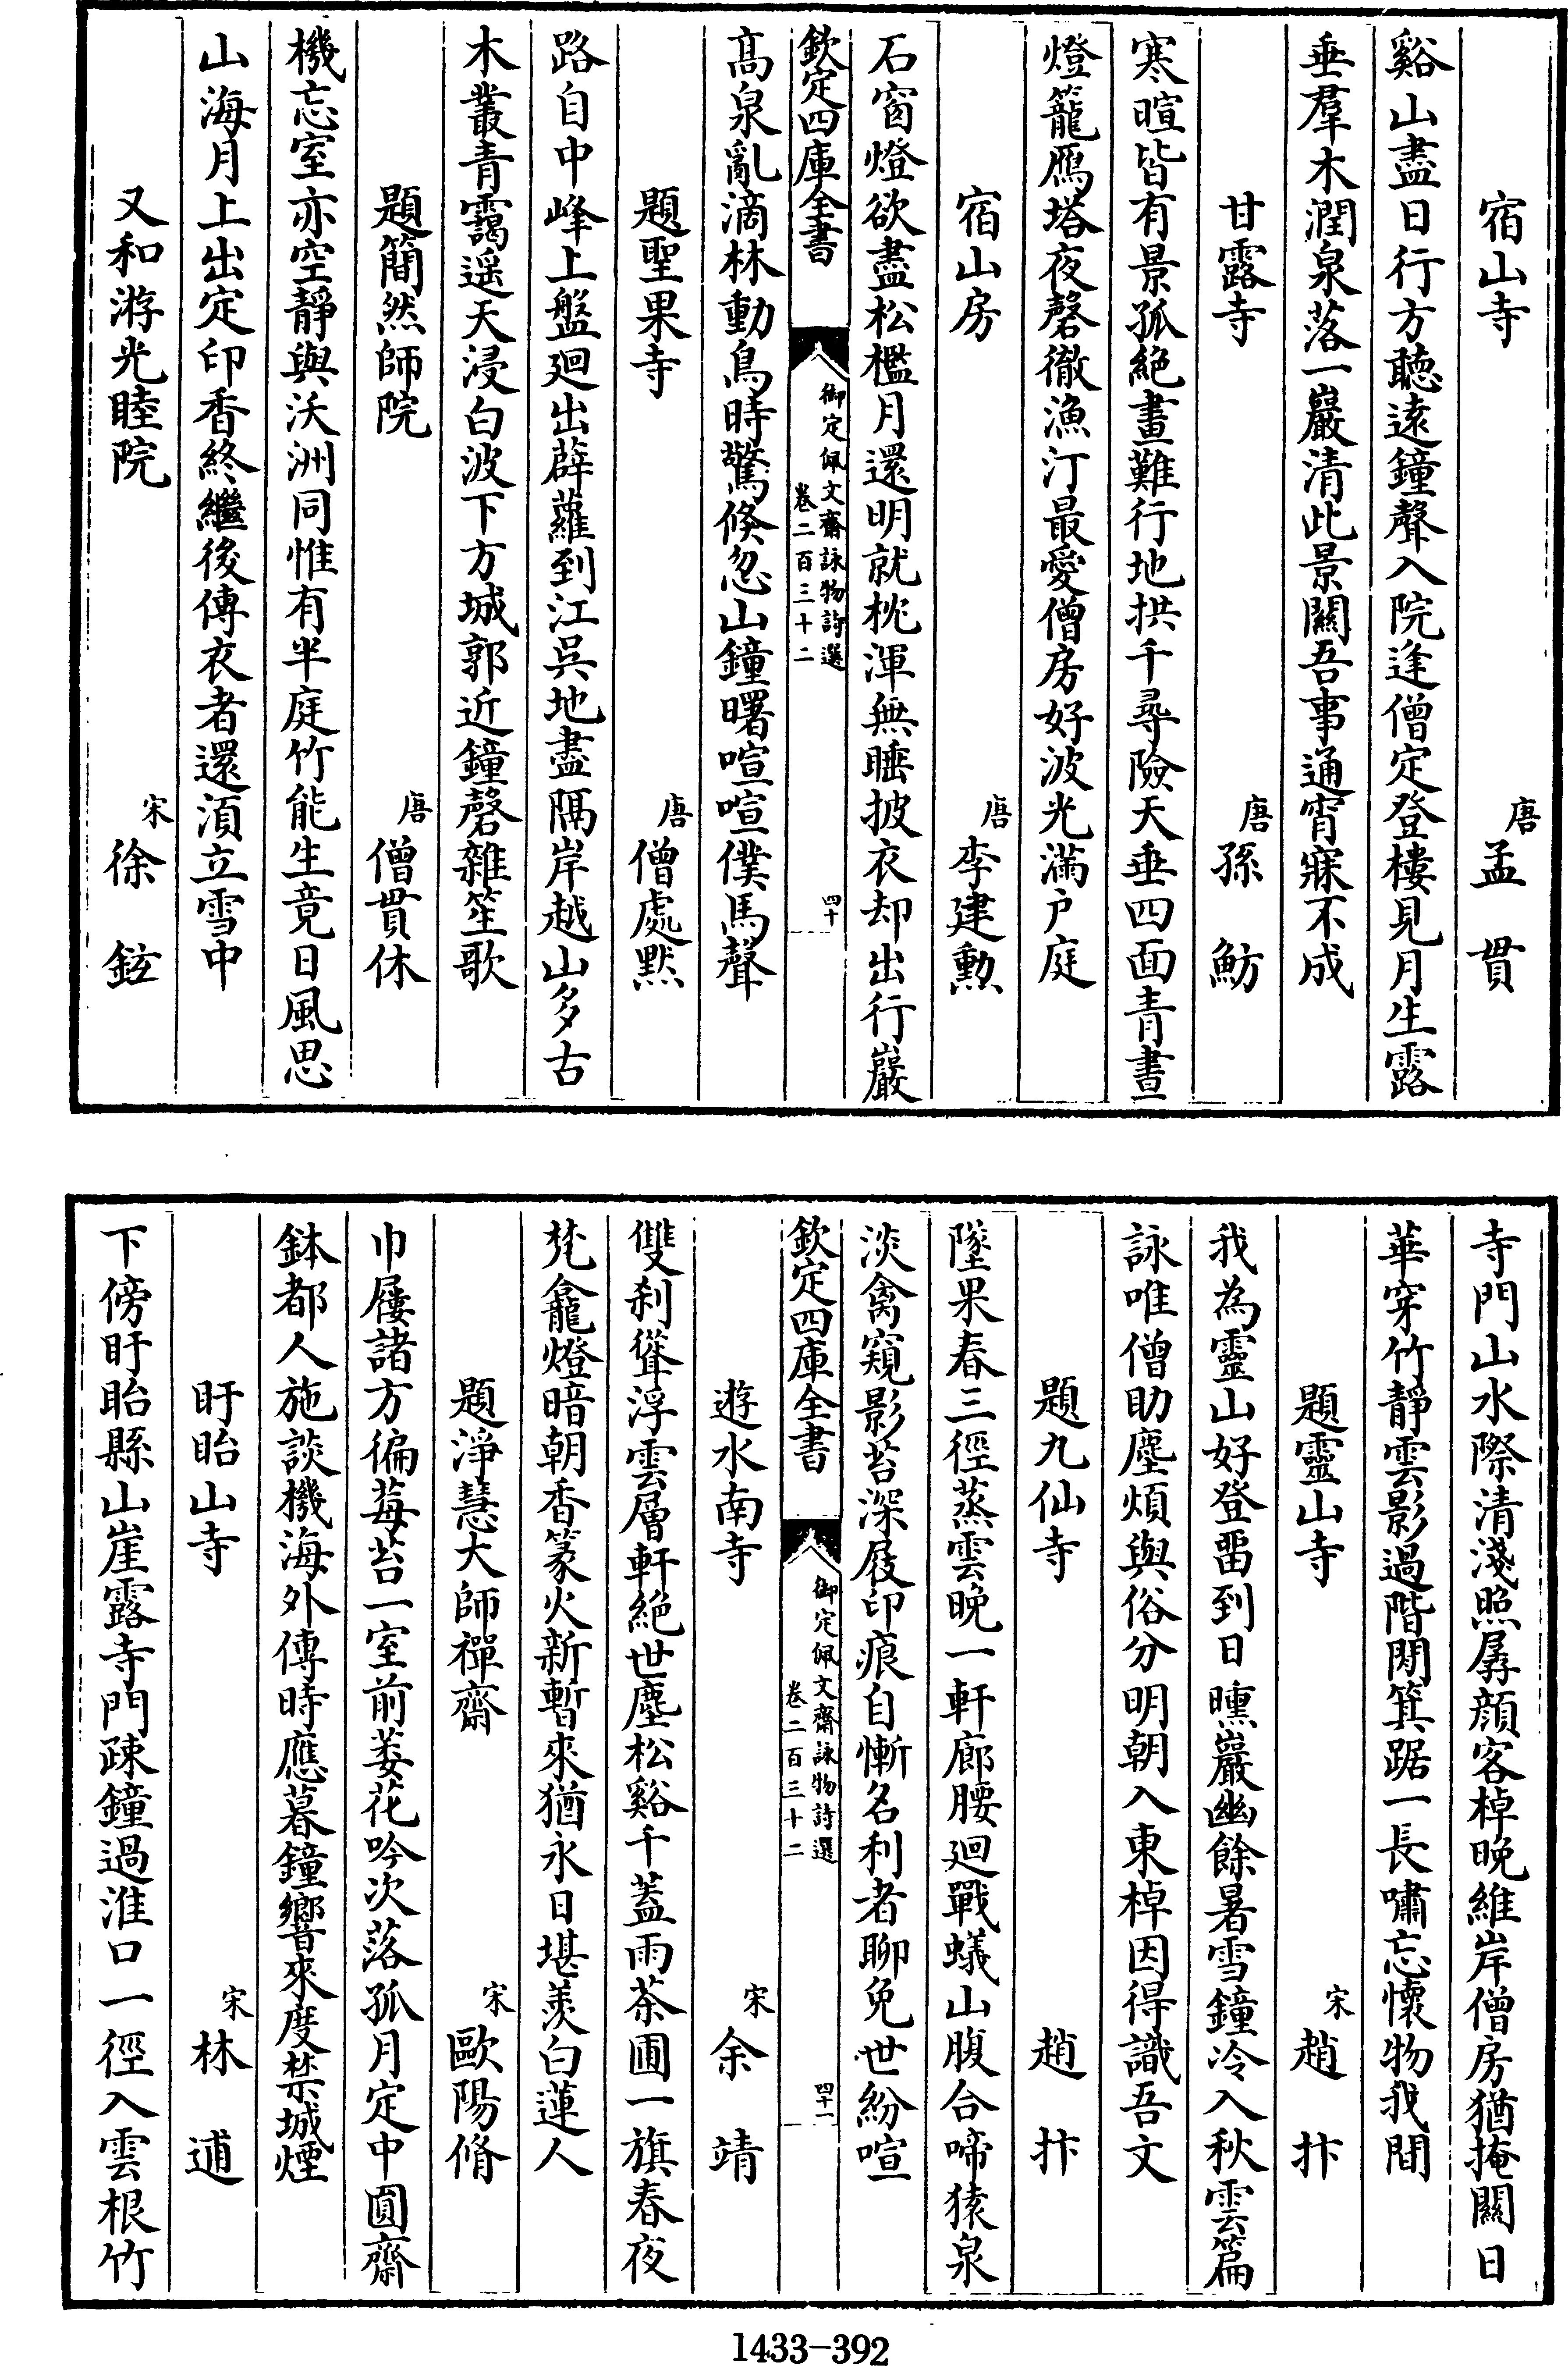 宿山寺　唐孟貫
谿山盡日行方聽遠鐘聲入院逢僧定登樓見月生露
垂羣木潤泉落一巖清此景關吾事通宵寐不成
甘露寺　唐孫魴
寒暄皆有景孤絶畫難行地拱千尋險天垂四面青晝
燈籠鴈塔夜磬徹漁汀最愛僧房好波光滿户庭
宿山房　唐李建勲
石窗燈欲盡松檻月還明就枕渾無睡披衣却出行巖
欽定四庫全書　御定佩文齋詠物詩選　卷二百三十二　四十
髙泉亂滴林動鳥時驚倏忽山鐘曙喧喧僕馬聲
題聖果寺　唐僧處默
路自中峰上盤廻出薜蘿到江吳地盡隔岸越山多古
木叢青靄遥天浸白波下方城郭近鐘磬雜笙歌
題簡然師院　唐僧貫休
機忘室亦空靜與沃洲同惟有半庭竹能生竟日風思
山海月上出定印香終繼後傳衣者還湏立雪中
又和游光睦院　宋徐鉉
寺門山水際清淺照孱顔客棹晚維岸僧房猶掩關日
華穿竹靜雲影過階閒箕踞一長嘯忘懷物我間
題靈山寺　宋趙抃
我為靈山好登留到日曛巖幽餘暑雪鐘冷入秋雲篇
詠唯僧助塵煩與俗分明朝入東棹因得識吾文
題九仙寺　趙抃
墜果春三徑蒸雲晚一軒廊腰廻戰蟻山腹合啼猿泉
淡禽窺影苔深屐印痕自慚名利者聊免世紛喧
欽定四庫全書　御定佩文齋詠物詩選　卷二百三十二　四十一
遊水南寺　宋余靖
雙刹聳浮雲層軒絶世塵松谿千蓋雨茶圃一旗春夜
梵龕燈暗朝香篆火新暫來猶永日堪羨白蓮人
題淨慧大師禪齋　宋歐陽脩
巾屨諸方徧莓苔一室前菱花吟次落孤月定中圓齋
鉢都人施談機海外傳時應暮鐘響來度禁城煙
盱眙山寺　宋林逋
下傍盱眙縣山崖露寺門疎鐘過淮口一徑入雲根竹
1433-392